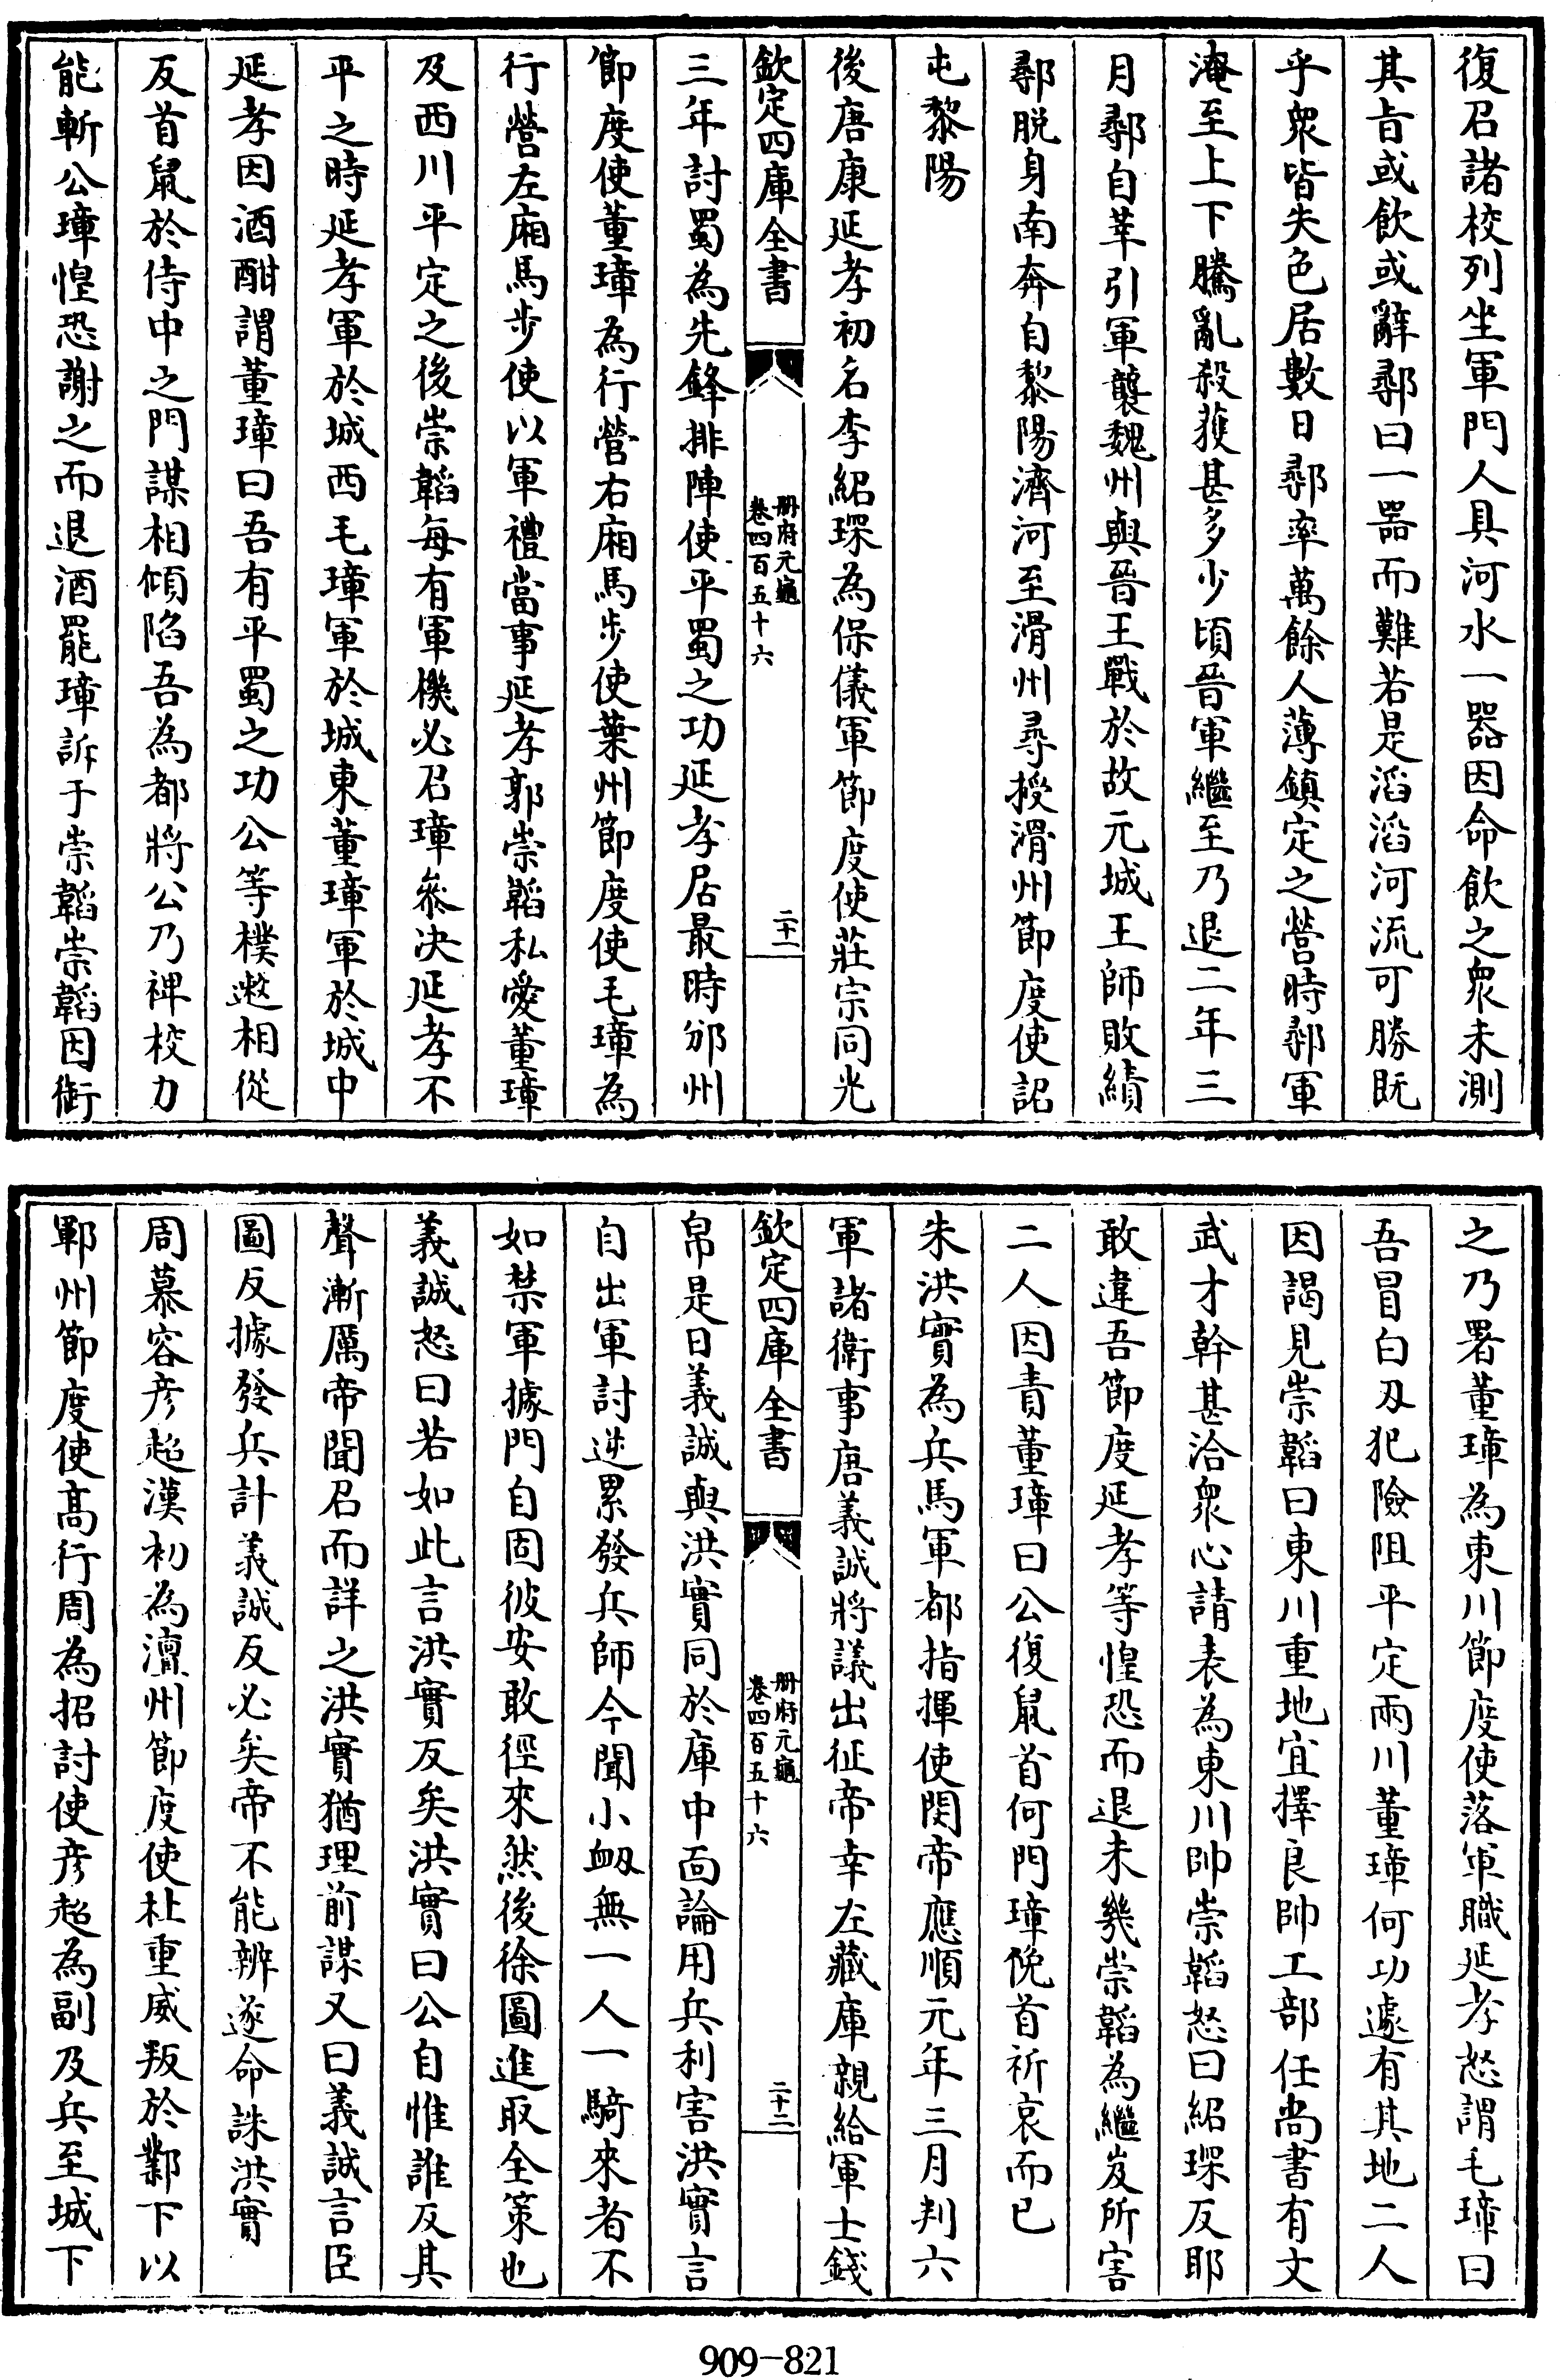 復召諸校列坐軍門人具河水一器因命飲之衆未測
其旨或飲或辭鄩曰一器而難若是滔滔河流可勝既
乎衆皆失色居數日鄩率萬餘人薄鎮定之營時鄩軍
淹至上下騰亂殺獲甚多少頃晉軍繼至乃退二年三
月鄩自莘引軍襲魏州與晉王戰於故元城王師敗績
鄩脱身南奔自黎陽濟河至滑州尋授滑州節度使詔
屯黎陽
後唐康延孝初名李紹琛為保儀軍節度使莊宗同光
欽定四庫全書
册府元龜
卷四百五十六
二十一
三年討蜀為先鋒排陣使平蜀之功延孝居最時邠州
節度使董璋為行營右廂馬步使葉州節度使毛璋為
行營左廂馬步使以軍禮當事延孝郭崇韜私愛董璋
及西川平定之後崇韜每有軍機必召璋叅决延孝不
平之時延孝軍於城西毛璋軍於城東董璋軍於城中
延孝因酒酣謂董璋曰吾有平蜀之功公等樸遬相從
反首鼠於侍中之門謀相傾陷吾為都將公乃裨校力
能斬公璋惶恐謝之而退酒罷璋訴于崇韜崇韜因銜
之乃署董璋為東川節度使落軍職延孝怒謂毛璋曰
吾冒白刄犯險阻平定兩川董璋何功遽有其地二人
因謁見崇韜曰東川重地宜擇良帥工部任尚書有文
武才幹甚洽衆心請表為東川帥崇韜怒曰紹琛反耶
敢違吾節度延孝等惶恐而退未幾崇韜為繼岌所害
二人因責董璋曰公復鼠首何門璋俛首祈哀而已
朱洪實為兵馬軍都指揮使閔帝應順元年三月判六
軍諸衛事唐義誠將議出征帝幸左藏庫親給軍士錢
欽定四庫全書
册府元龜
卷四百五十六
二十二
帛是日義誠與洪實同於庫中面論用兵利害洪實言
自出軍討逆累發兵師今聞小衂無一人一騎來者不
如禁軍據門自固彼安敢徑來然後徐圖進取全策也
義誠怒曰若如此言洪實反矣洪實曰公自惟誰反其
聲漸厲帝聞召而詳之洪實猶理前謀又曰義誠言臣
圖反據發兵計義誠反必矣帝不能辨遂命誅洪實
周慕容彦超漢初為澶州節度使杜重威叛於鄴下以
鄆州節度使高行周為招討使彦超為副及兵至城下
909-821